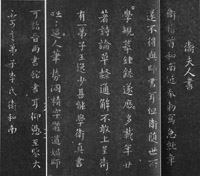 衛夫人書
衛稽首和南近奉敕寫急就章
遂不得與師書耳但衛隨世所
學規摹鍾繇遂歷多載年廿
著詩論草隸通解不敢上呈衛
有一弟子王逸少甚能學衛真書
咄咄逼人筆勢洞精字體遒媚師
可詣晉尚書館書耳仰憑至鑒大
不可言弟子李氏衛和南